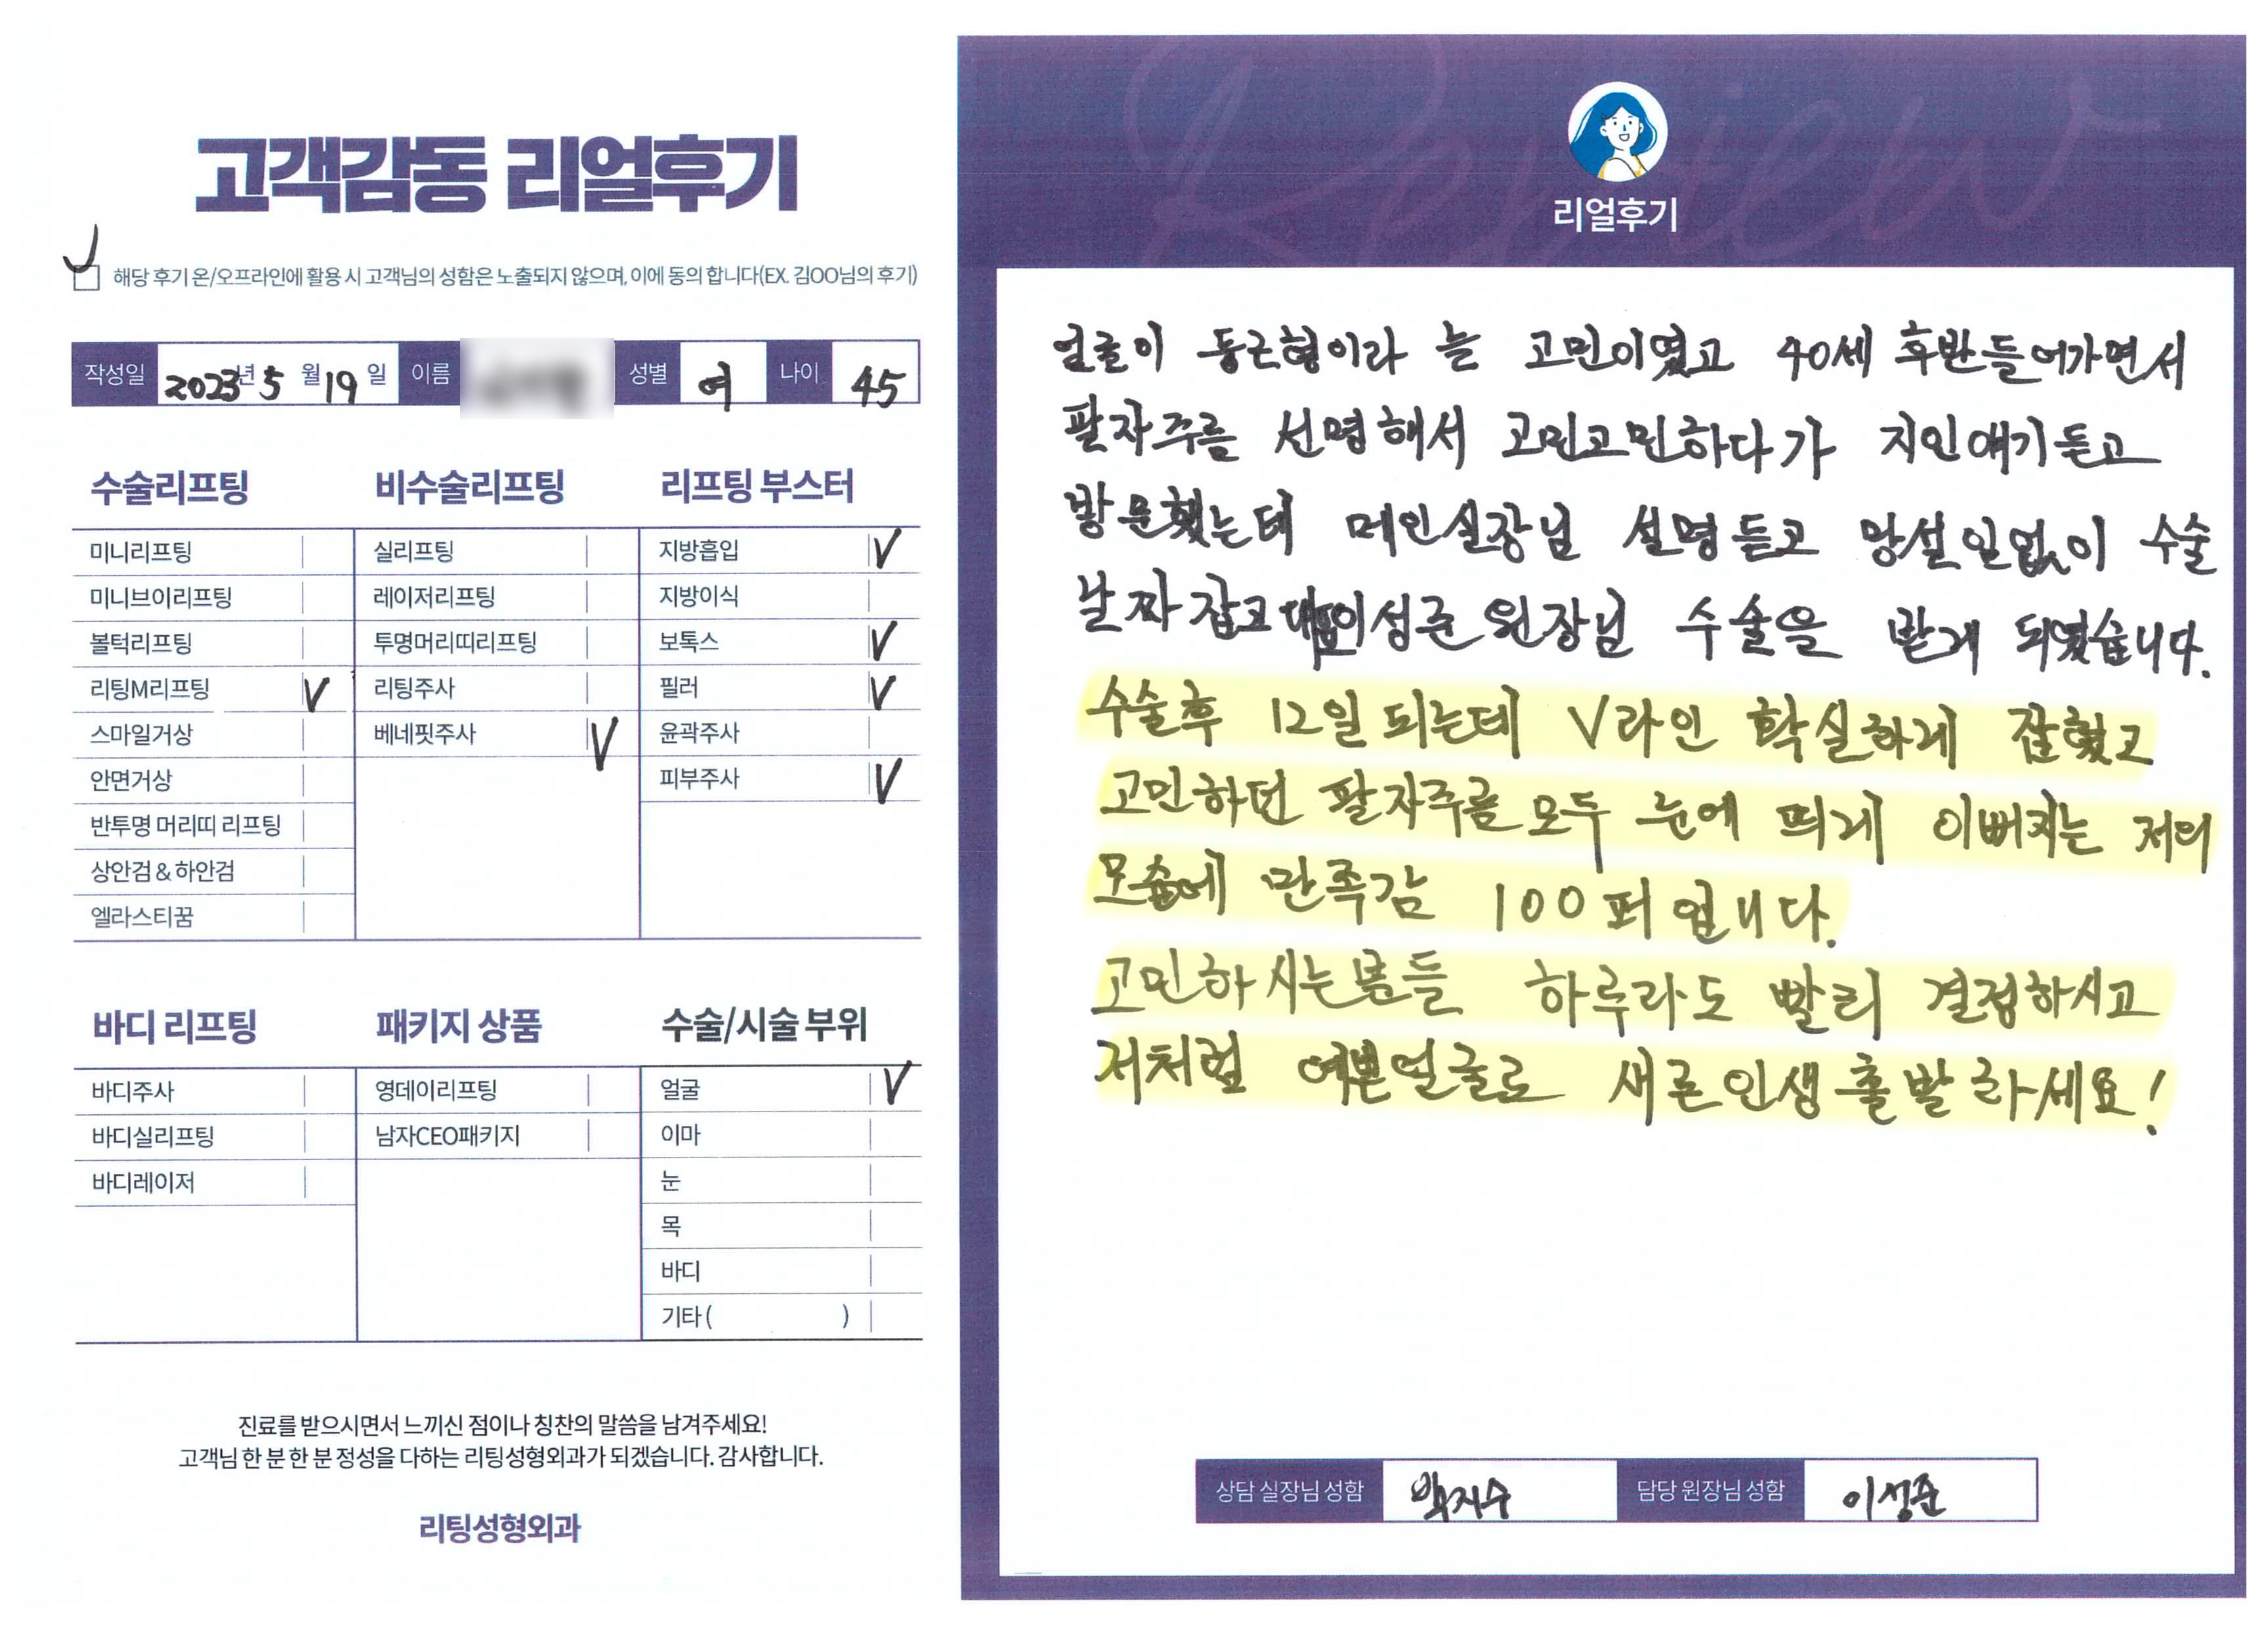 고객감동 리얼후기
해당 후기 온/오프라인에 활용 시 고객님의 성함은 노출되지 않으며, 이에 동의 합니다(EX. 김OO님의 후기)
작성일 2023년 5월 19일 이름 성별 여 나이 45
수술리프팅
미니리프팅
미니브이리프팅
볼턱리프팅
리팅M리프팅 V
스마일거상
안면거상
반투명 머리띠 리프팅
상안검 & 하안검
엘라스티꿈
비수술리프팅
실리프팅
레이저리프팅
투명머리띠리프팅
리팅주사
베네핏주사 V
리프팅 부스터
지방흡입 V
지방이식
보톡스 V
필러 V
윤곽주사
피부주사 V
바디 리프팅
바디주사
바디실리프팅
바디레이저
패키지 상품
영데이리프팅
남자CEO패키지
수술/시술 부위
얼굴 V
이마
눈
목
바디
기타 ( )
진료를 받으시면서 느끼신 점이나 칭찬의 말씀을 남겨주세요!
고객님 한 분 한 분 정성을 다하는 리팅성형외과가 되겠습니다. 감사합니다.
리팅성형외과
Review
리얼후기
얼굴이 동근형이라 늘 고민이였고 40세 후반들어가면서
팔자주름 선명해서 고민고민하다가 지인얘기듣고
방문했는데 메인실장님 설명듣고 망설임없이 수술
날짜 잡고 이성준 원장님 수술을 받게 되였습니다.
수술후 12일 되는데 V라인 확실하게 잡혔고
고민하던 팔자주름 모두 눈에 띄게 이뻐지는 저의
모습에 만족감 100퍼 입니다.
고민하시는분들 하루라도 빨리 결정하시고
저처럼 예쁜얼굴로 새로운인생 출발하세요!
상담 실장님 성함 박지수 담당 원장님 성함 이성준